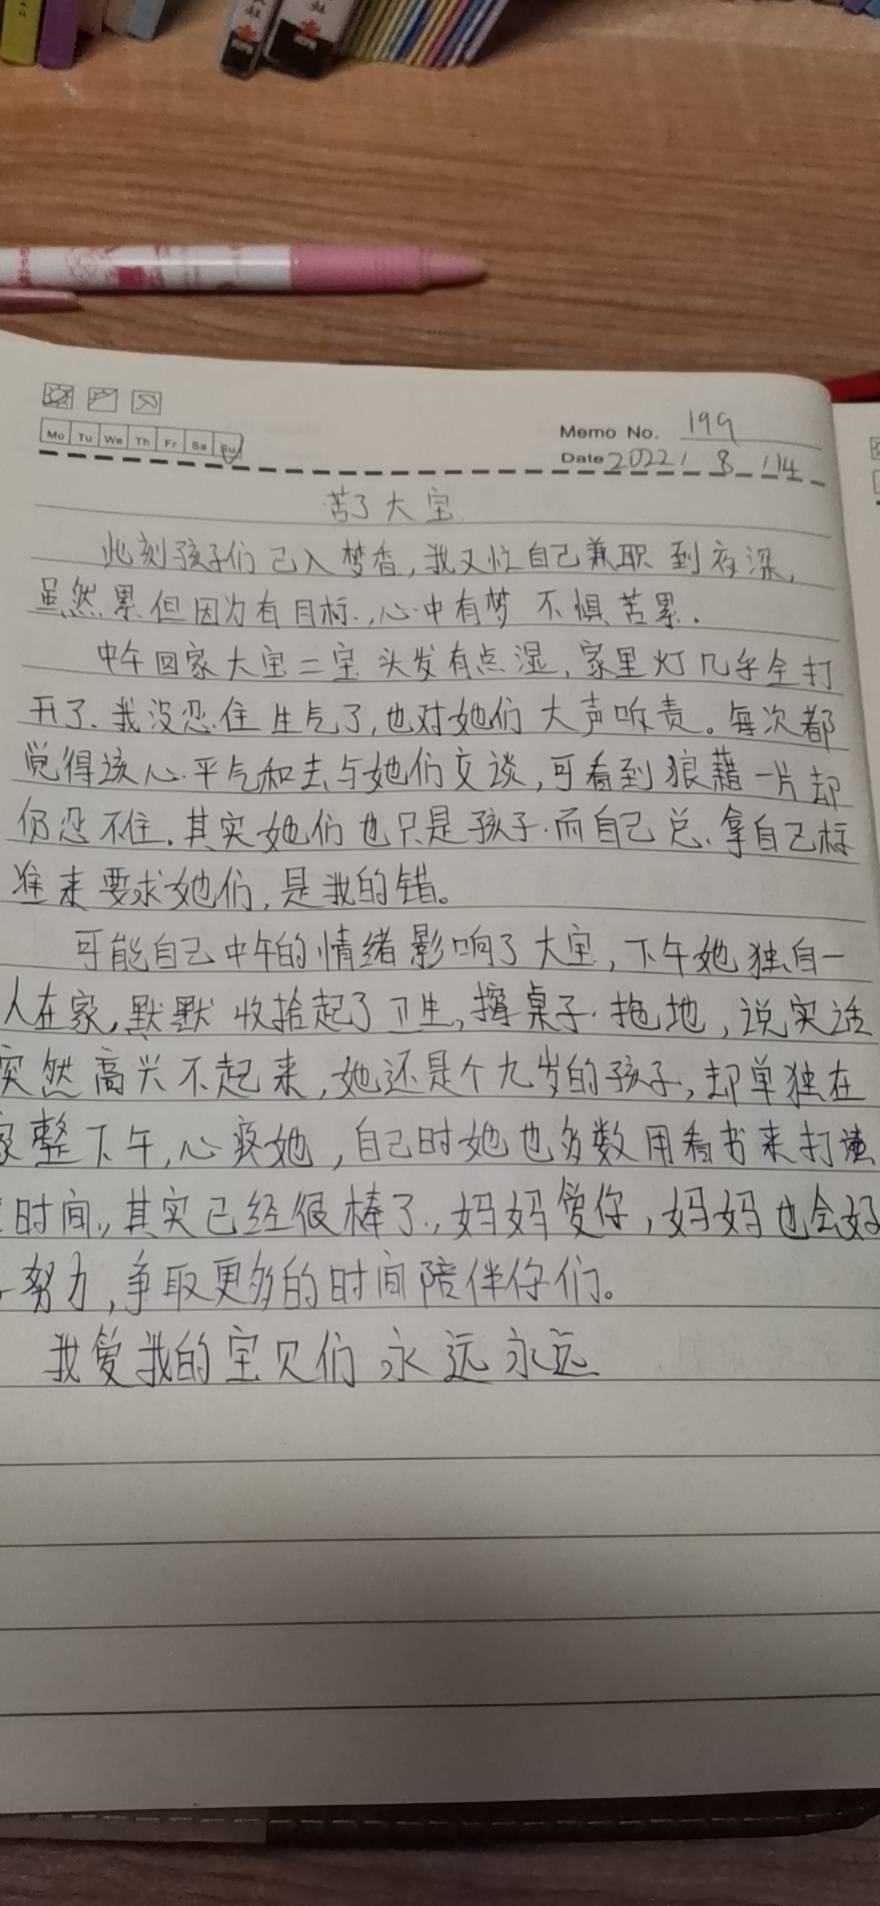 Mo Tu We Th Fr Sa Su
Memo No. 199
Date 2022 / 8 / 14
苦了大宝
此刻孩子们已入梦香,我又忙自己兼职到夜深,
虽然累但因为有目标,心中有梦不惧苦累.
中午回家大宝二宝头发有点湿,家里灯几乎全打
开了.我没忍住生气了,也对她们大声呵责。每次都
觉得该心平气和去与她们交谈,可看到狼藉一片却
仍忍不住.其实她们也只是孩子.而自己总拿自己标
准来要求她们,是我的错。
可能自己中午的情绪影响了大宝,下午她独自一
人在家,默默收拾起了卫生,擦桌子.拖地,说实话
突然高兴不起来,她还是个九岁的孩子,却单独在
家整下午,心疼她,自己时她也多数用看书来打
时间,其实已经很棒了,妈妈爱你,妈妈也会好
努力,争取更多的时间陪伴你们。
我爱我的宝贝们永远永远